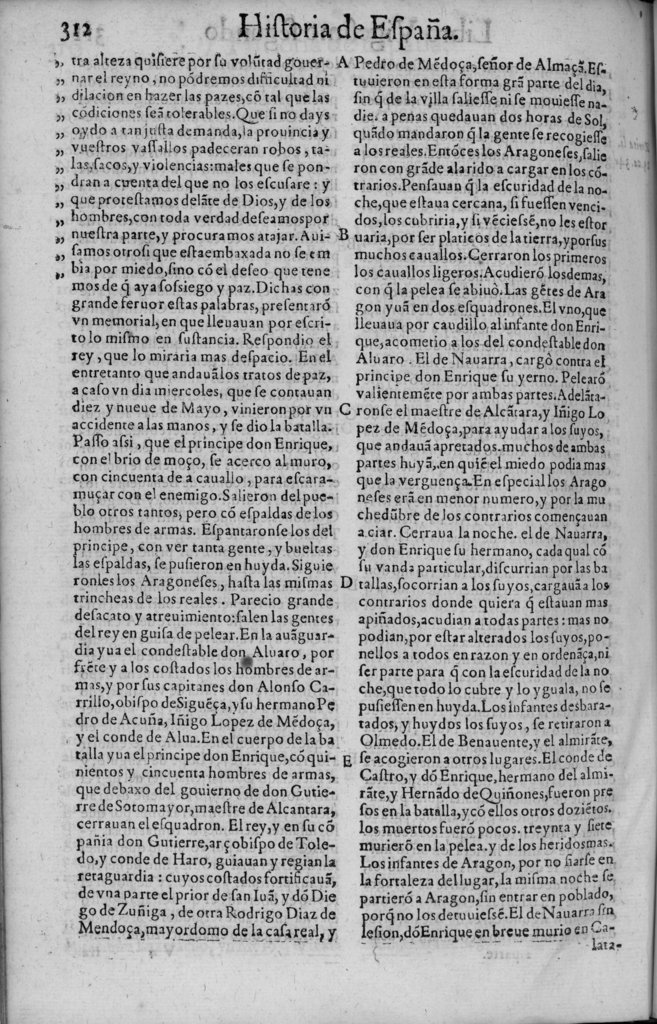 312 Historia de España.
„ tra alteza quisiere por su volũtad gouer-
„ nar el reyno, no põdremos difficultad ni
„ dilacion en hazer las pazes, cõ tal que las
„ cõdiciones seã tolerables. Que si no days
„ oydo a tan justa demanda, la prouincia y
„ vuestros vassallos padeceran robos, ta-
„ las, sacos, y violencias: males que se pon-
„ dran a cuenta del que no los escusare: y
„ que protestamos delãte de Dios, y de los
„ hombres, con toda verdad deseamos por
„ nuestra parte, y procuramos atajar. Aui-
„ samos otrosi que esta embaxada no se em
„ bia por miedo, sino cõ el deseo que tene
mos de q̃ aya sosiego y paz. Dichas con
grande feruor estas palabras, presentarõ
vn memorial, en que lleuauan por escri-
to lo mismo en sustancia. Respondio el
rey, que lo miraria mas despacio. En el
entretanto que andauã los tratos de paz,
a caso vn dia miercoles, que se contauan
diez y nueue de Mayo, vinieron por vn
accidente a las manos, y se dio la batalla.
Passo assi, que el principe don Enrique,
con el brio de moço, se acerco al muro,
con cincuenta de a cauallo, para escara-
muçar con el enemigo. Salieron del pue-
blo otros tantos, pero cõ espaldas de los
hombres de armas. Espantaronse los del
principe, con ver tanta gente, y bueltas
las espaldas, se pusieron en huyda. Siguie
ronles los Aragoneses, hasta las mismas
trincheas de los reales. Parecio grande
desacato y atreuimiento: salen las gentes
del rey en guisa de pelear. En la auãguar-
dia yua el condestable don Aluaro, por
frẽte y a los costados los hombres de ar-
mas, y por sus capitanes don Alonso Ca-
rrillo, obispo de Siguẽça, y su hermano Pe
dro de Acuña, Iñigo Lopez de Mẽdoça,
y el conde de Alua. En el cuerpo de la ba
talla yua el principe don Enrique, cõ qui-
nientos y cincuenta hombres de armas,
que debaxo del gouierno de don Gutie-
rre de Sotomayor, maestre de Alcantara,
cerrauan el esquadron. El rey, y en su cõ
pañia don Gutierre, arçobispo de Tole-
do, y conde de Haro, guiauan y regian la
retaguardia: cuyos costados fortificauã,
de vna parte el prior de san Iuã, y dõ Die
go de Zuñiga, de otra Rodrigo Diaz de
Mendoça, mayordomo de la casa real, y
A Pedro de Mẽdoça, señor de Almaçã. Es-
tuuieron en esta forma grã parte del dia,
sin q̃ de la villa saliesse ni se mouiesse na-
die. a penas quedauan dos horas de Sol,
quãdo mandaron q̃ la gente se recogiesse
a los reales. Entõces los Aragoneses, salie
ron con grãde alarido a cargar en los cõ-
trarios. Pensauan q̃ la escuridad de la no-
che, que estaua cercana, si fuessen venci-
dos, los cubriria, y si vẽciessẽ, no les estor
B uaria, por ser platicos de la tierra, y por sus
muchos cauallos. Cerraron los primeros
los cauallos ligeros. Acudierõ los demas,
con q̃ la pelea se abiuò. Las gẽtes de Ara
gon yuã en dos esquadrones. El vno, que
lleuaua por caudillo al infante don Enri-
que, acometio a los del condestable don
Aluaro. El de Nauarra, cargò contra el
principe don Enrique su yerno. Pelearõ
valientemẽte por ambas partes. Adelãta-
C ronse el maestre de Alcãtara, y Iñigo Lo
pez de Mẽdoça, para ayudar a los suyos,
que andauã apretados. muchos de ambas
partes huyã, en quiẽ el miedo podia mas
que la verguença. En especial los Arago
neses erã en menor numero, y por la mu
chedũbre de los contrarios començauan
a ciar. Cerraua la noche. el de Nauarra,
y don Enrique su hermano, cada qual cõ
su vanda particular, discurrian por las ba
D tallas, socorrian a los suyos, cargauã a los
contrarios donde quiera q̃ estauan mas
apiñados, acudian a todas partes: mas no
podian, por estar alterados los suyos, po-
nellos a todos en razon y en ordenãça, ni
ser parte para q̃ con la escuridad de la no
che, que todo lo cubre y lo yguala, no se
pusiessen en huyda. Los infantes desbara-
tados, y huydos los suyos, se retiraron a
Olmedo. El de Benauente, y el almirãte,
E se acogieron a otros lugares. El conde de
Castro, y dõ Enrique, hermano del almi-
rãte, y Hernãdo de Quiñones, fueron pre
sos en la batalla, y cõ ellos otros doziẽtos.
los muertos fuerõ pocos. treynta y siete
murierõ en la pelea. y de los heridos mas.
Los infantes de Aragon, por no fiarse en
la fortaleza del lugar, la misma noche se
partierõ a Aragon, sin entrar en poblado,
porq̃ no los detuuiessẽ. El de Nauarra sin
lesion, dõ Enrique en breue murio en Ca-
lata-